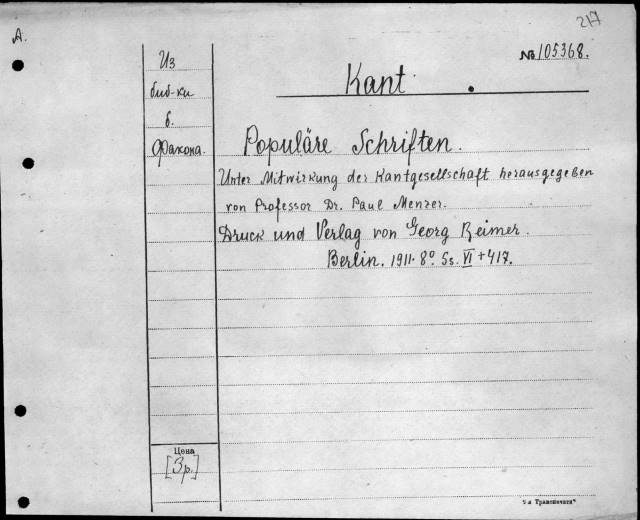 217
A.
№ 105368.
Из
биб-ки
б.
Факона.
Kant.
Populäre Schriften.
Unter Mitwirkung der Kantgesellschaft herausgegeben
von Professor Dr. Paul Menzer.
Druck und Verlag von Georg Reimer.
Berlin. 1911. 8º. Ss. VI + 417.
Цена
[3р.]